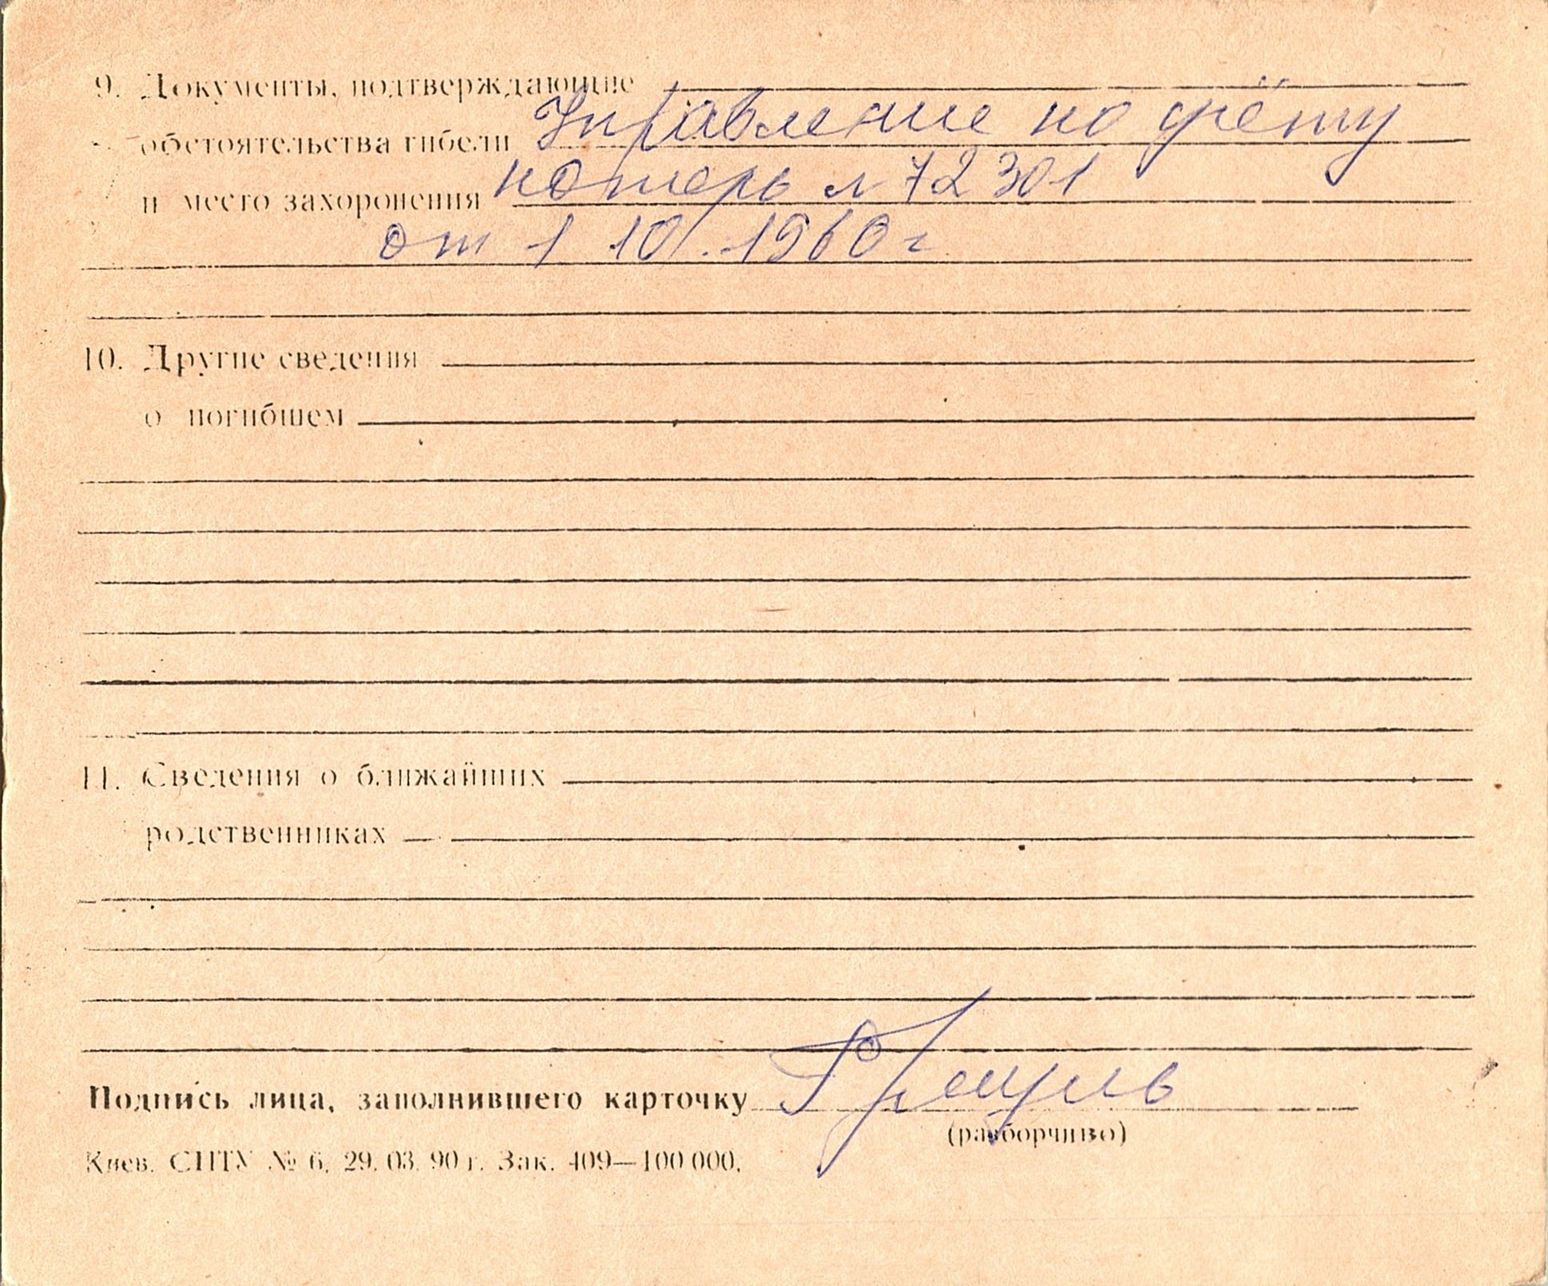 9. Документы, подтверждающие
обстоятельства гибели Управление по учёту
и место захоронения потерь № 72301
от 1 10. 1960 г.
10. Другие сведения
о погибшем
11. Сведения о ближайших
родственниках
Подпись лица, заполнившего карточку
(разборчиво)
Киев. СПТУ № 6. 29. 03. 90 г. Зак. 409—100 000.